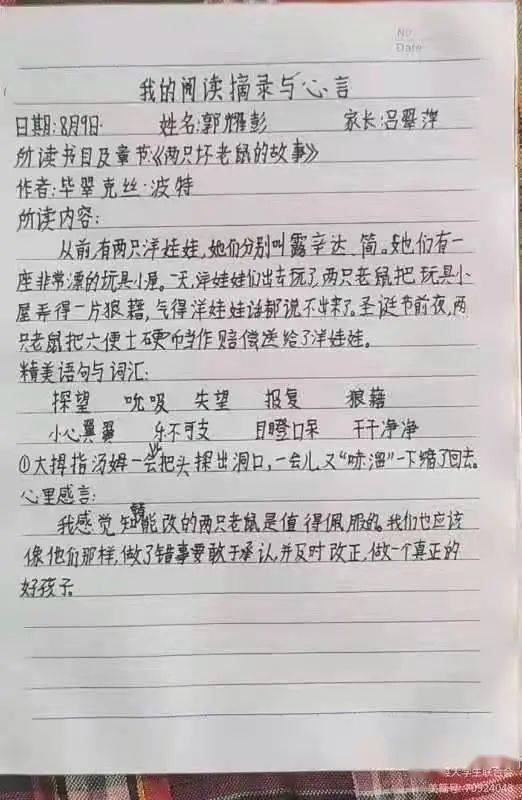 No.
Date
我的阅读摘录与心言
日期:8月9日 姓名:郭耀彭 家长:吕翠萍
所读书目及章节:《两只坏老鼠的故事》
作者:毕翠克丝·波特
所读内容:
从前,有两只洋娃娃,她们分别叫露辛达、简。她们有一
座非常漂的玩具小屋。一天,洋娃娃们出去玩了,两只老鼠把玩具小
屋弄得一片狼藉,气得洋娃娃话都说不出来了。圣诞节前夜,两
只老鼠把六便士硬币当作赔偿送给了洋娃娃。
精美语句与词汇:
探望 吮吸 失望 报复 狼藉
小心翼翼 乐不可支 目瞪口呆 干干净净
①大拇指汤姆一会儿把头探出洞口,一会儿又“哧溜”一下缩了回去。
心里感言:
我感觉知错能改的两只老鼠是值得佩服的。我们也应该
像他们那样,做了错事要敢于承认,并及时改正,做一个真正的
好孩子。
大学生联合会
美篇号:70924048